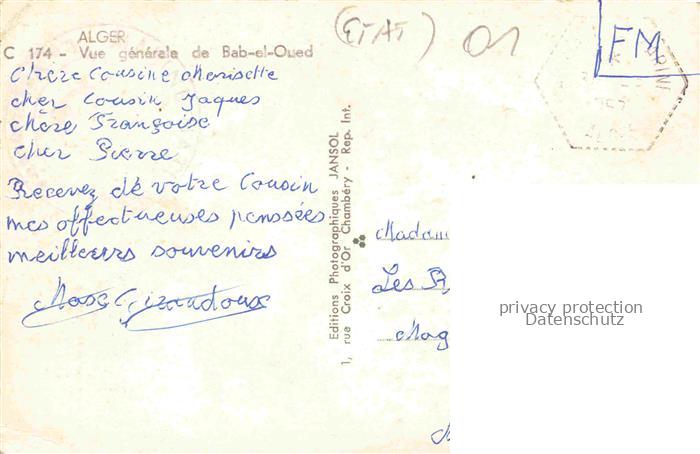 (ETAT) 01
FM
ALGER
C 174 - Vue générale de Bab-el-Oued
Chère Cousine
cher Cousin Jaques
chère Françoise
cher Pierre
Recevez de votre Cousin
mes affectueuses penssées
meilleurs souvenirs
Editions Photographiques JANSOL
1, rue Croix d'Or Chambéry - Rep. Int.
Madam
Les
Mag
privacy protection
Datenschutz